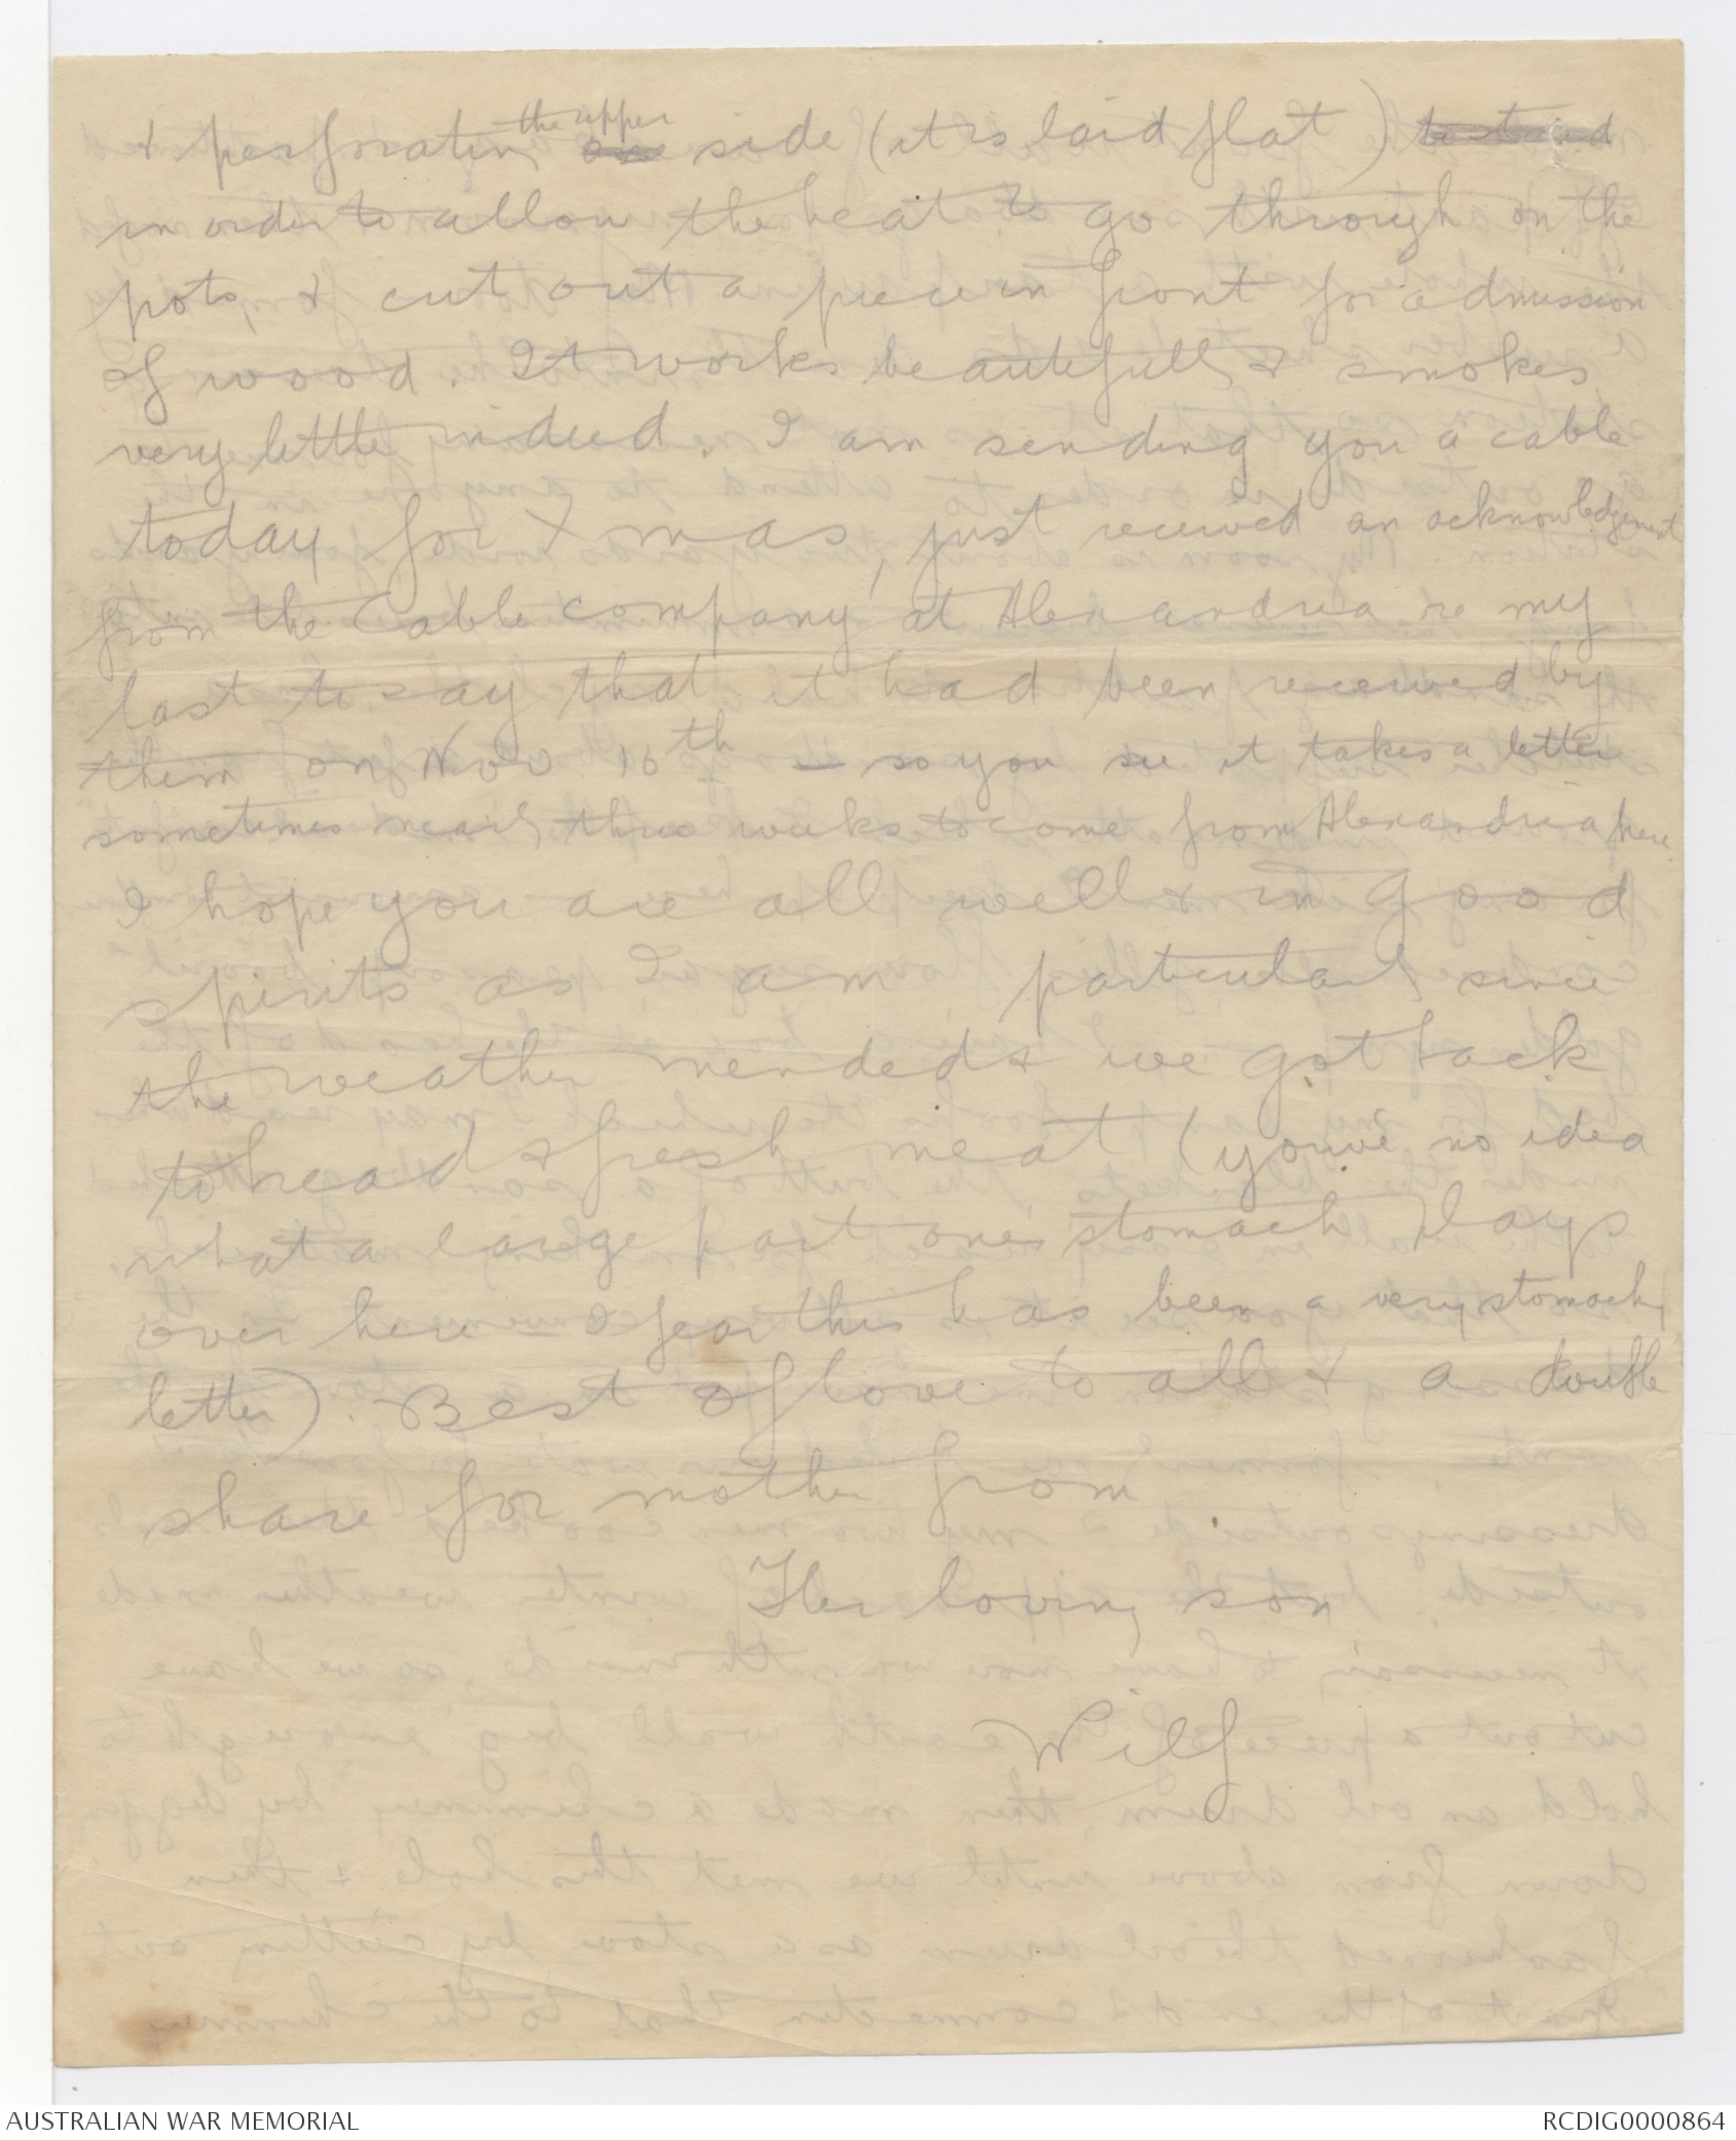 & perforating the upper side (it is laid flat)
in order to allow the heat to go through on the
pots, & cut out a piece in front for admission
of wood. It works beautifully & smokes
very little indeed. I am sending you a cable
today for Xmas, just received an acknowledgement
from the Cable company at Alexandria re my
last to say that it had been received by
them on Nov 16th – so you see it takes a letter
sometimes nearly three weeks to come from Alexandria here.
I hope you are all well & in good
spirits as I am, particularly since
the weather mended & we got back
to bread & fresh meat (you've no idea
what a large part ones stomach plays
over here – I fear this has been a very stomachy
letter). Best of love to all & a double
share for mother from
Her loving son
Wilf
AUSTRALIAN WAR MEMORIAL
RCDIG0000864